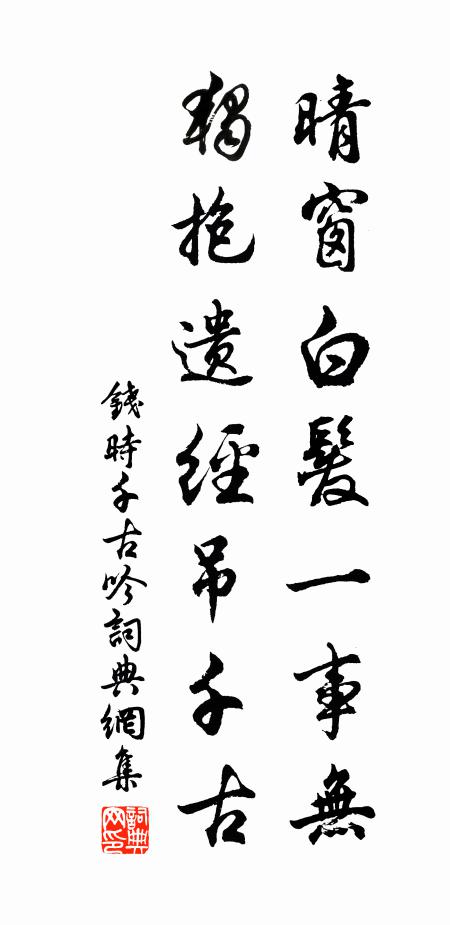 晴窗白髮一事無
獨抱遺經吊千古
錢時千古吟詞典網集
詞典網印